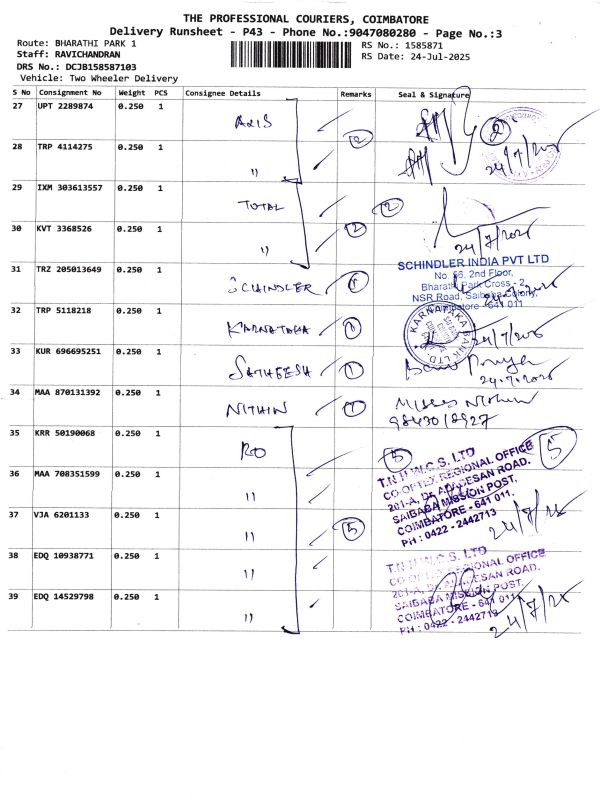 THE PROFESSIONAL COURIERS, COIMBATORE
Delivery Runsheet - P43 - Phone No.:9047080280 - Page No.:3
Route: BHARATHI PARK 1
RS No.: 1585871
Staff: RAVICHANDRAN
RS Date: 24-Jul-2025
DRS No.: DCJB158587103
Vehicle: Two Wheeler Delivery
S No Consignment No Weight PCS Consignee Details Remarks Seal & Signature
27 UPT 2289874 0.250 1 AXIS 2 2
28 TRP 4114275 0.250 1 " 24/7/2025
29 IXM 303613557 0.250 1 TOTAL 2
30 KVT 3368526 0.250 1 " 2 24/7/2025
SCHINDLER INDIA PVT LTD
No. 56, 2nd Floor,
31 TRZ 205013649 0.250 1 SCHINDLER 1 Bharathi Park Cross - 2,
NSR Road, Saibaba Colony,
Coimbatore - 641 011
32 TRP 5118218 0.250 1 KARNATAKA 1 KARNATAKA BANK LTD. 24/7/2025
33 KUR 696695251 0.250 1 SATHEESH 1 24.7.2025
34 MAA 870131392 0.250 1 NITHIN 1
35 KRR 50190068 0.250 1 RO 5 5
T.N.H.W.C.S. LTD
CO-OPTEX REGIONAL OFFICE
36 MAA 708351599 0.250 1 " 201-A, DR. ADVCESAN ROAD.
SAIBABA MISSION POST.
COIMBATORE - 641 011.
37 VJA 6201133 0.250 1 " 5 PH : 0422 - 2442713 24/7/25
38 EDQ 10938771 0.250 1 " T.N.H.W.C.S. LTD
CO-OPTEX REGIONAL OFFICE
39 EDQ 14529798 0.250 1 " SAIBABA MISSION POST.
COIMBATORE - 641 011.
PH : 0422 - 2442713 24/7/25